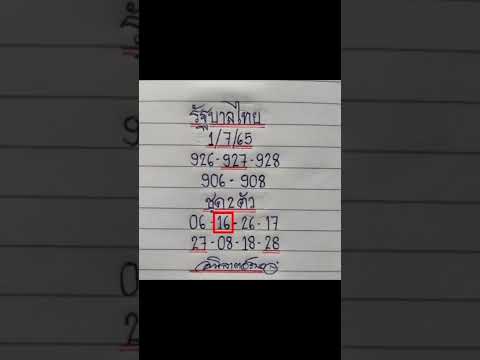 รัฐบาลไทย
1/7/65
926-927-928
906-908
ชุด2ตัว
06-16-26-17
27-08-18-28